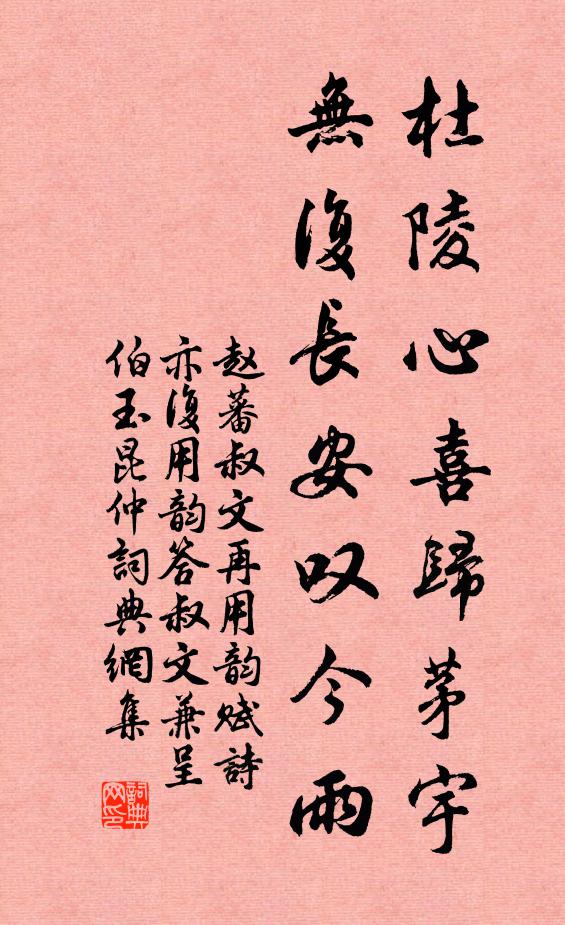 杜陵心喜歸茅宇
無復長安叹今雨
赵蕃叔文再用韵赋詩
亦復用韵答叔文兼呈
伯玉昆仲詞典網集
詞典网印